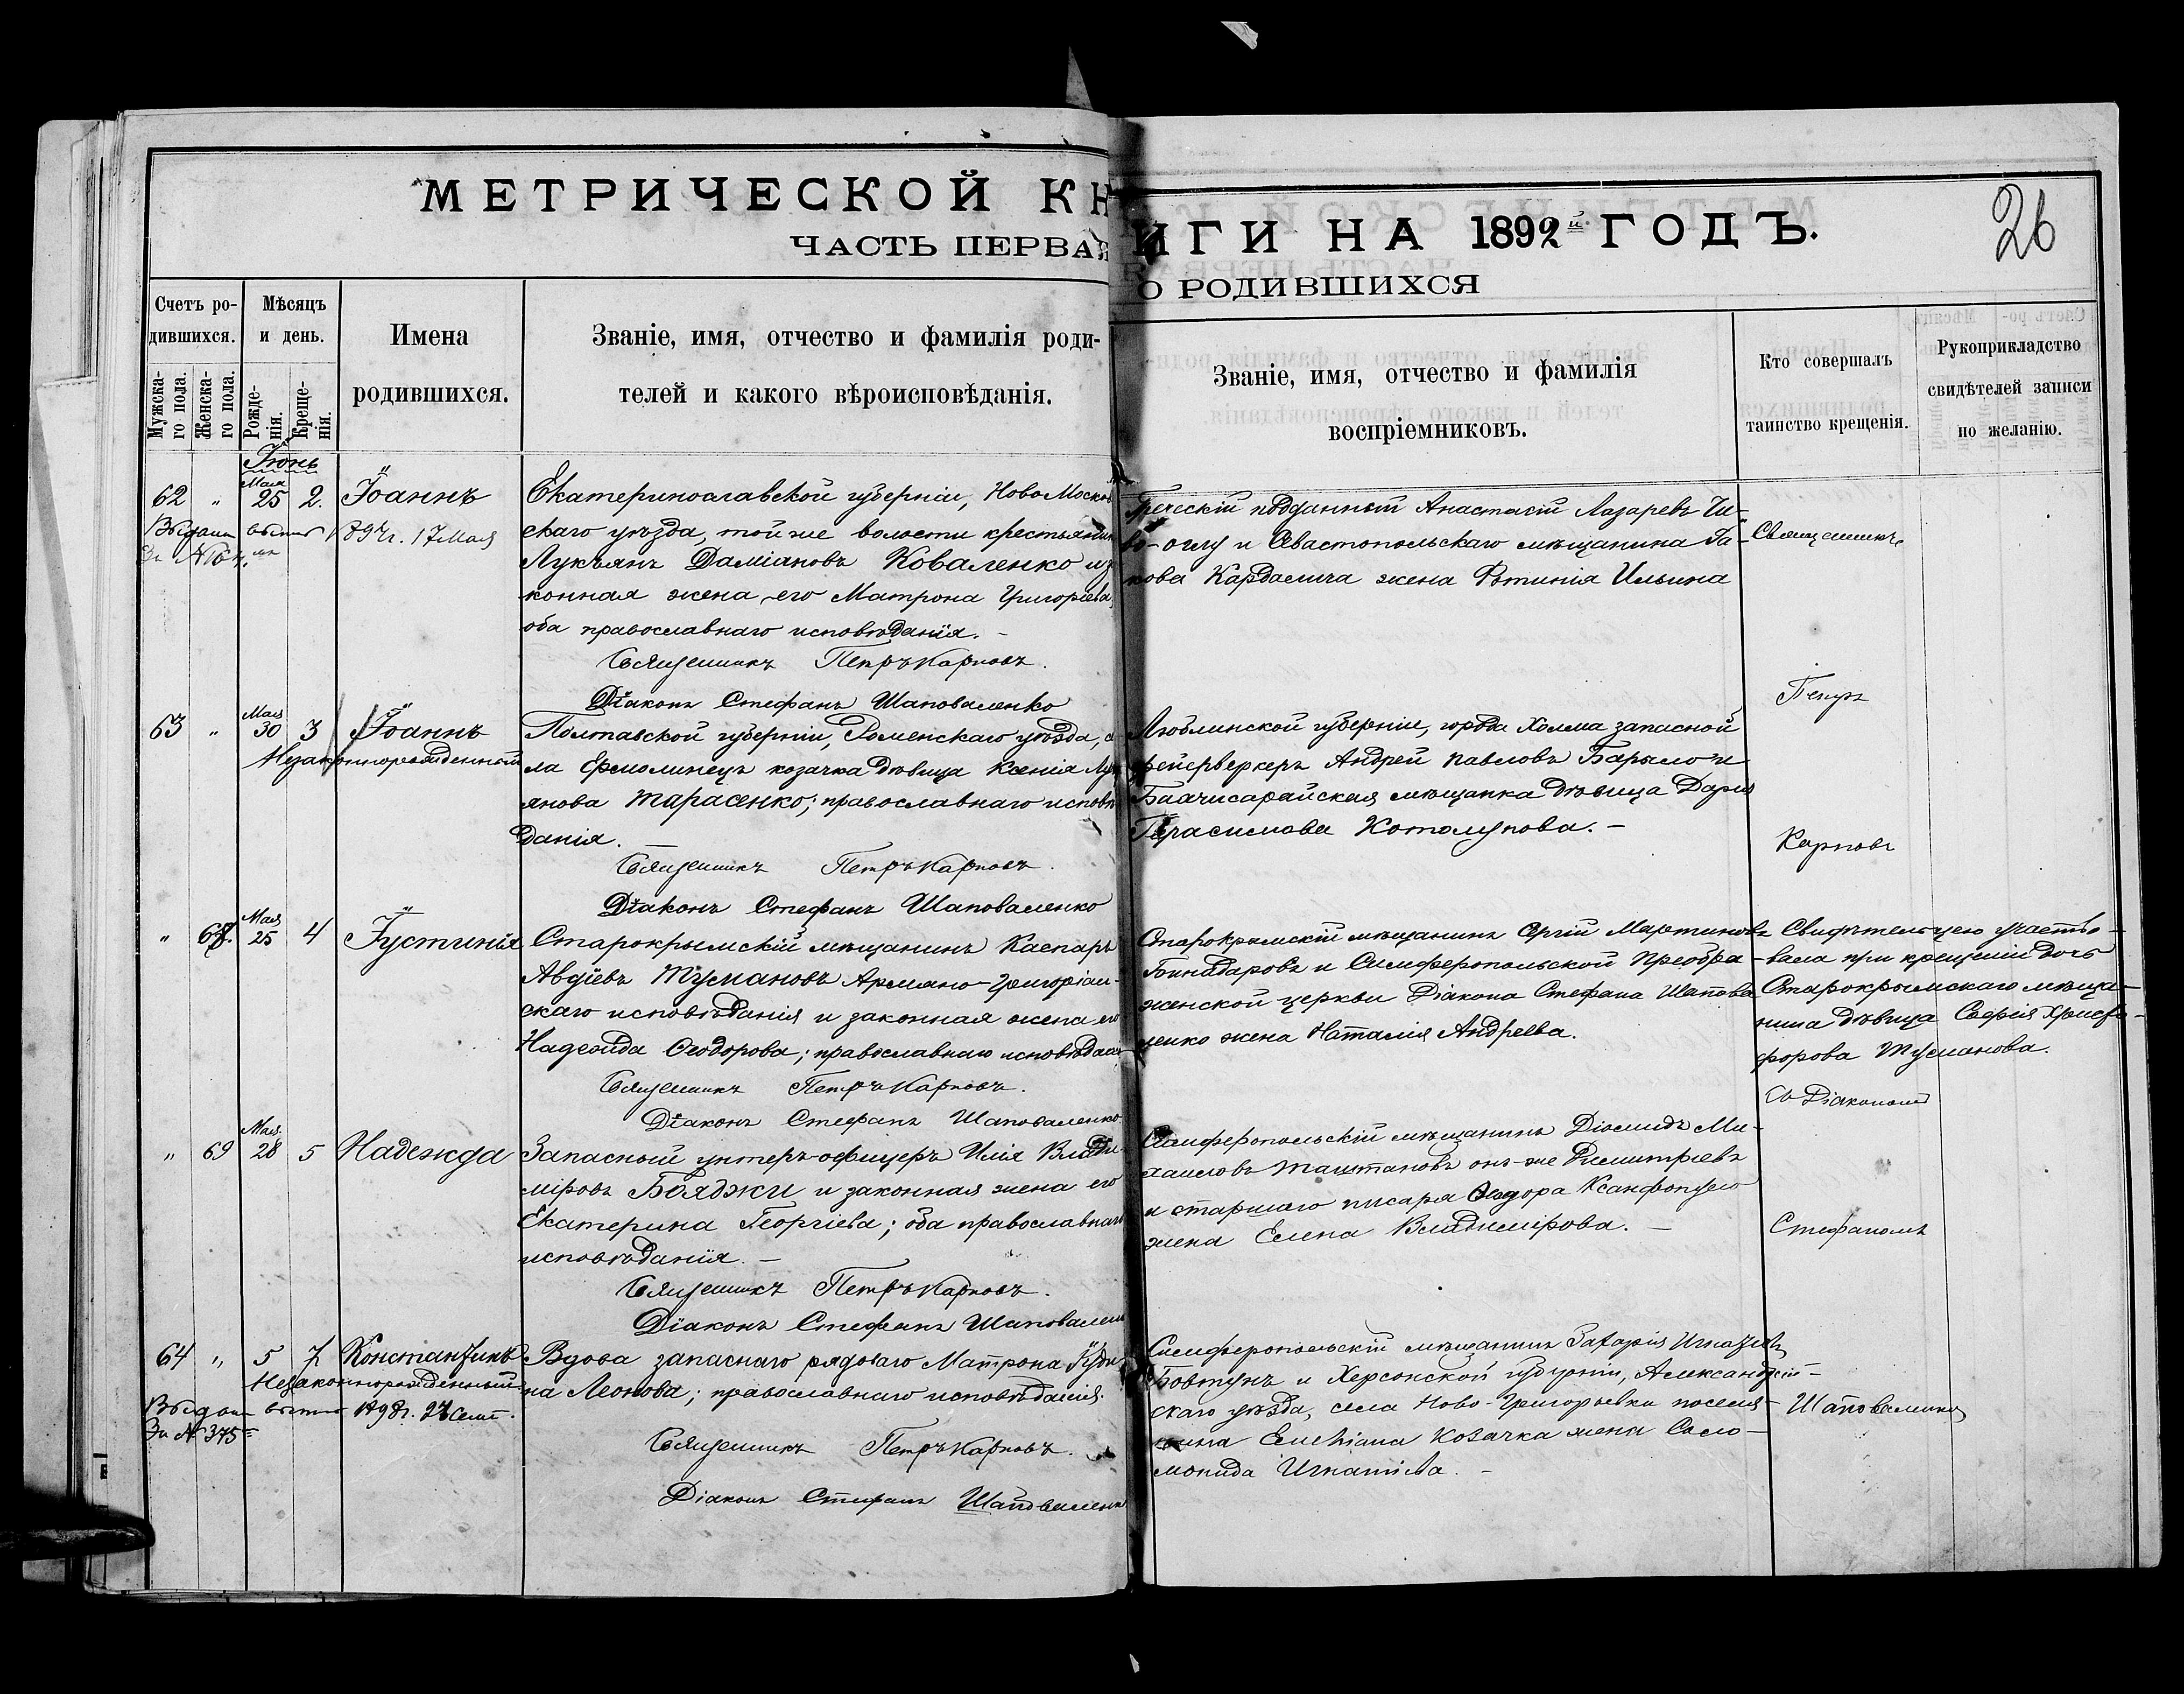 МЕТРИЧЕСКОЙ КНИГИ НА 1892й ГОДЪ.
26
ЧАСТЬ ПЕРВАЯ О РОДИВШИХСЯ
Счетъ ро-
дившихся.
Мужска-
го пола.
Женска-
го пола.
Мѣсяцъ
и день.
Рожде-
нія.
Креще-
нія.
Имена
родившихся.
Званіе, имя, отчество и фамилія роди-
телей и какого вѣроисповѣданія.
Званіе, имя, отчество и фамилія
воспріемниковъ.
Кто совершалъ
таинство крещенія.
Рукоприкладство
свидѣтелей записи
по желанію.
Іюнь
62 " Мая 25 2. Іоаннъ
17 Мая
Екатеринославской губерніи, Ново Москов
скаго уѣзда, той же волости крестьянин
Лукъянъ Даміановъ Коваленко и
конная жена его Матрона Григорьева,
оба православнаго исповѣданія. -
Священникъ Петръ Карповъ.
Діаконъ Стефанъ Шаповаленко
Греческій подданный Анастасій Лазаревъ
оглу и Севастопольскаго мѣщанина Іа-
кова жена Фотинія Ильина
Священникъ
Петръ
Карповъ
63 " Мая 30 3 Іоаннъ
Незаконнорожденный
Полтавской губерніи, Роменскаго уѣзда, се
ла Ермолинецъ козачка дѣвица Ксенія Лук
янова Тарасенко; православнаго исповѣ
данія.
Священникъ Петръ Карповъ.
Діаконъ Стефанъ Шаповаленко
Люблинской губерніи, города Холма запасной
фейерверкеръ Андрей Павловъ Барыло и
Бахчисарайская мѣщанка дѣвица Дарія
Герасимова Котолупова. -
" 68. Мая 25 4 Іустинія
Старокрымскій мѣщанинъ Каспаръ
Авдіевъ Тусмановъ Армяно-Григоріан-
скаго исповѣданія и законная жена его
Надежда Ѳеодорова; православнаго исповѣдан
Священникъ Петръ Карповъ.
Діаконъ Стефанъ Шаповаленко.
Старокрымскій мѣщанинъ Сергій Мартиновъ
и Симферопольской Преобра-
женской церкви Діакона Стефана Шапова
ленко жена Наталія Андреева.
Свидѣтельницею участво-
вала при крещеніи дочь
Старокрымскаго мѣща-
нина дѣвица Софія Христо-
форова Тусманова.
Съ Діакономъ
Стефаномъ
" 69 Мая 28 5 Надежда
Запасный унтеръ-офицеръ Илія Влади
міровъ Бояджи и законная жена его
Екатерина Георгіева; оба православнаго
исповѣданія. -
Священникъ Петръ Карповъ.
Діаконъ Стефанъ Шаповален
Симферопольскій мѣщанинъ Діомидъ Ми-
хаиловъ Таштановъ онъ-же Димитріевъ
и старшаго писаря Ѳеодора
жена Елена Владимірова. -
64 " 5 7 Константинъ
Незаконнорожденный
1898г.
За № 375
Вдова запаснаго рядоваго Матрона Іуди
на Леонова; православнаго исповѣданія.
Священникъ Петръ Карповъ.
Діаконъ Стефанъ Шаповаленк
Симферопольскій мѣщанинъ Захарія Игнатіевъ
Бовтунъ и Херсонской губерніи, Александрій-
скаго уѣзда, села Ново-Григорьевки поселя-
нина Козачка жена Соло-
монида Игнатіева. -
Шаповаленко